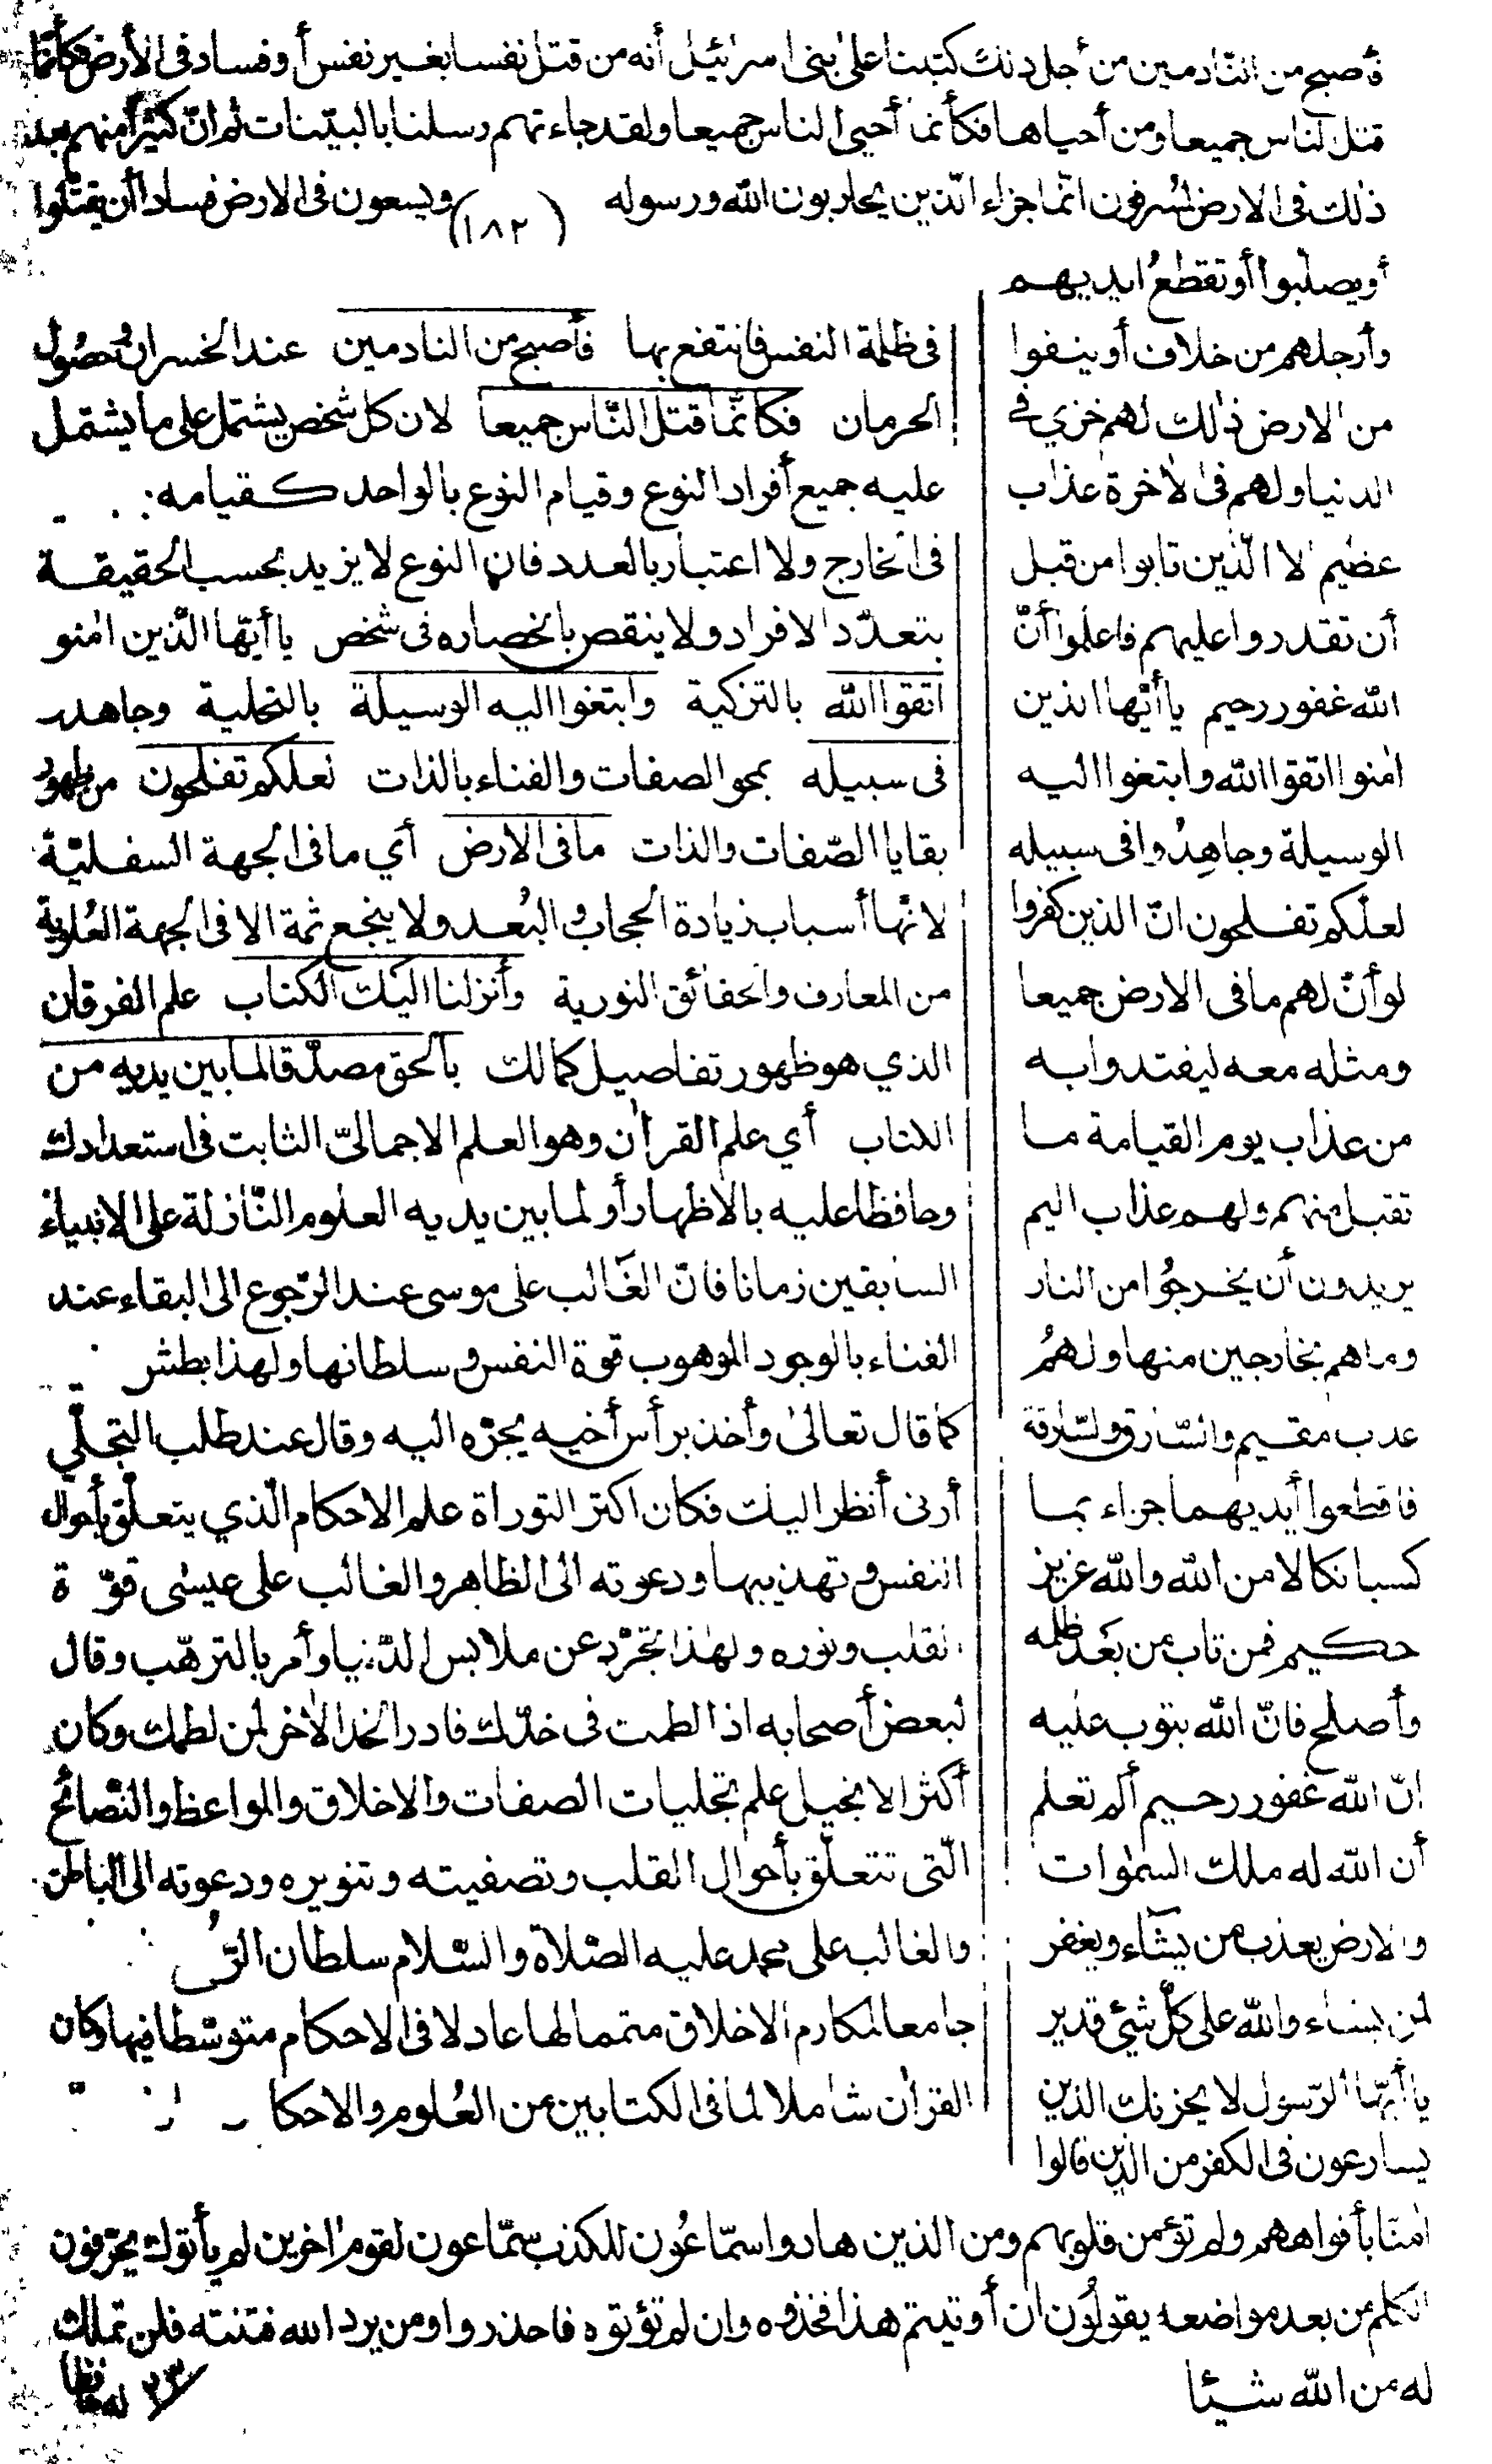 فأصبح من النّادمين من أجل ذلك كتبنا على بنى اسرٰئيل أنه من قتل نفسا بغير نفس أو فساد فى الأرض فكأنّما
قتل الناس جميعا ومن أحياها فكأنما أحيى الناس جميعا ولقد جاءتهم رسلنا بالبيّنات ثم انّ كثيرا منهم بعد
ذٰلك فى الارض لمسرفون انّما جزاء الّذين يحاربون الله ورسوله (١٨٢) ويسعون فى الارض فسادا أن يقتّلوا
أو يصلّبوا أو تقطع ايديهم
وأرجلهم من خلاف أو ينفوا
من الارض ذٰلك لهم خزي في
الدنيا ولهم فى الاٰخرة عذاب
عظيم الا الّذين تابوا من قبل
أن تقدروا عليهم فاعلموا أنّ
الله غفور رحيم يا أيّها الذين
اٰمنوا اتقوا الله وابتغوا اليه
الوسيلة وجاهِدُوا فى سبيله
لعلّكم تفلحون انّ الذين كفروا
لو أنّ لهم ما فى الارض جميعا
ومثله معه ليفتدوا به
من عذاب يوم القيامة ما
تقبل منهم ولهم عذاب اليم
يريدون أن يخرجُوا من النار
وما هم بخارجين منها ولهُم
عذاب مقيم والسّارق والسّارقة
فاقطعوا أيديهما جزاء بما
كسبا نكالا من الله والله عزيز
حكيم فمن تاب من بَعد ظلمه
وأصلح فانّ الله يتوب عليه
انّ الله غفور رحيم ألم تعلم
أن الله له ملك السمٰوات
والارض يعذب من يشآء ويغفر
لمن يشاء والله على كلّ شيئ قدير
يا أيّها الرّسول لا يحزنك الذين
يسارعون فى الكفر من الذين قالوا
فى ظلمة النفس فانتفع بها فأصبح من النادمين عند الخسران وحُصُول
الحرمان فكأنّما قتل النّاس جميعا لان كل شخص يشتمل على ما يشتمل
عليه جميع أفراد النوع وقيام النوع بالواحد كقيامه
فى الخارج ولا اعتبار بالعدد فان النوع لا يزيد بحسب الحقيقة
بتعدّد الافراد ولا ينقص بانحصاره فى شخص يا أيّها الّذين اٰمنو
اتقوا الله بالتزكية وابتغوا اليه الوسيلة بالتحلية وجاهدو
فى سبيله بمحو الصفات والفناء بالذات لعلكم تفلحون من ظهور
بقايا الصّفات والذات ما فى الارض أي ما فى الجهة السفليّة
لانّها أسباب زيادة الحجاب والبُعد ولا ينجع ثمة الا فى الجهة العُلوية
من المعارف والحقائق النورية وأنزلنا اليك الكتاب علم الفرقان
الذي هو ظهور تفاصيل كمالك بالحق مصدّقا لما بين يديه من
الكتاب أي علم القراٰن وهو العلم الاجماليّ الثابت فى استعدادك
وحافظا عليه بالاظهار أو لما بين يديه العلوم النّازلة على الانبياء
السابقين زمانا فانّ الغَالب على موسى عند الرّجوع الى البقاء عند
الفناء بالوجود الموهوب قوة النفس وسلطانها ولهذا بطش
كما قال تعالى وأخذ برأس أخيه يجرّه اليه وقال عند طلب التجلّي
أرنى أنظر اليك فكان اكثر التوراة علم الاحكام الّذي يتعلّق بأحوال
النفس وتهذيبها ودعوته الى الظاهر والغالب على عيسٰى قوّة
القلب ونوره ولهٰذا تجرّد عن ملابس الدّنيا وأمر بالترهّب وقال
لبعض أصحابه اذا لطمت فى خدّك فادر الخد الاٰخر لمن لطمك وكان
أكثر الانجيل علم تجليات الصفات والاخلاق والمواعظ والنّصائح
الّتى تتعلّق بأحوال القلب وتصفيته وتنويره ودعوته الى الباطن
والغالب على محمد عليه الصّلاة والسّلام سلطان الرّ
جامعا لمكارم الاخلاق متمما لها عادلا فى الاحكام متوسّطا فيها وكان
القراٰن شاملا لما فى الكتابين من العُلوم والاحكا
اٰمنّا بأفواههم ولم تؤمن قلوبهم ومن الذين هادوا سمّاعُون للكذب سمّاعون لقوم اٰخرين لم يأتوك يحرّفون
الكلم من بعد مواضعه يقولُون ان أوتيتم هذا فخذوه وان لم تؤتوه فاحذروا ومن يرد الله فتنته فلن تملك
له من الله شيئا